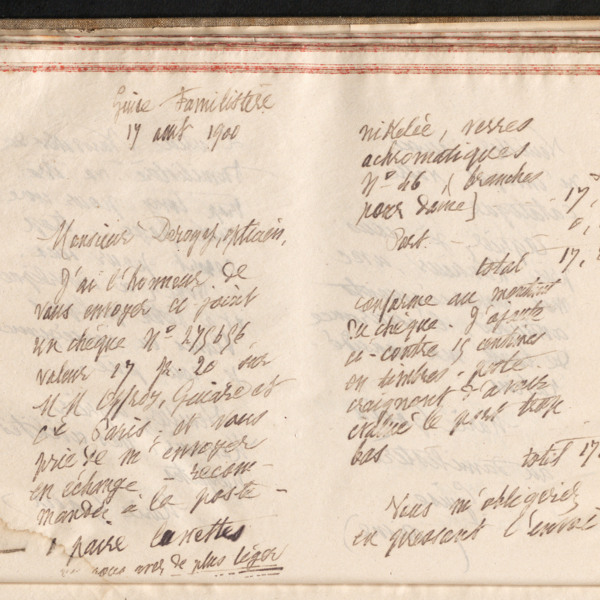 Guise Familistère
17 août 1900
Monsieur Deroger, opticien,
J'ai l'honneur de
vous envoyer ci joint
un chèque N° 275656
valeur 17 fr. 20 sur
M M Offroy, Guiard et
Cie Paris, et vous
prie de m'envoyer
en échange recom-
mandée à la poste -
1 paire lunettes
vous avez de plus léger
nikelée, verres
achromatiques
N° 46 (branches
pour dame]
17,
0,
Port. -
total 17,
conforme au montant
du chèque. J'ajoute
ci-contre 15 centimes
en timbres-poste.
craignant d'avoir
évalué le port trop
bas
total 17.
Vous m'obligeriez
en pressant l'envoi